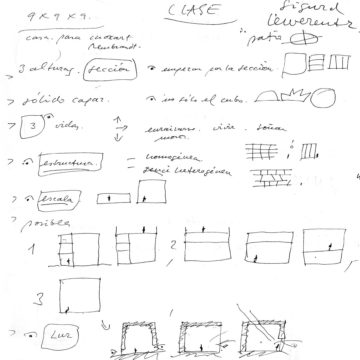 9 x 9 x 9.
CLASE
Sigurd Lewerentz
casa para mozart
Rembrandt.
patio
> 3 alturas. sección
empezar por la sección
> sólido capaz.
in situ el cubo.
> 3 vidas.
vivir. soñar
morir.
> estructura.
= homogénea
= heterogénea
> escala
> posible
1
2
3
> Luz